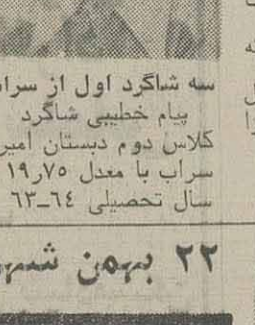 سه شاگرد اول از سراب
پیام خطیبی شاگرد
کلاس دوم دبستان امیر
سراب با معدل ۱۹٫۷۵
سال تحصیلی ۶۴-۶۳
۲۲ بهمن